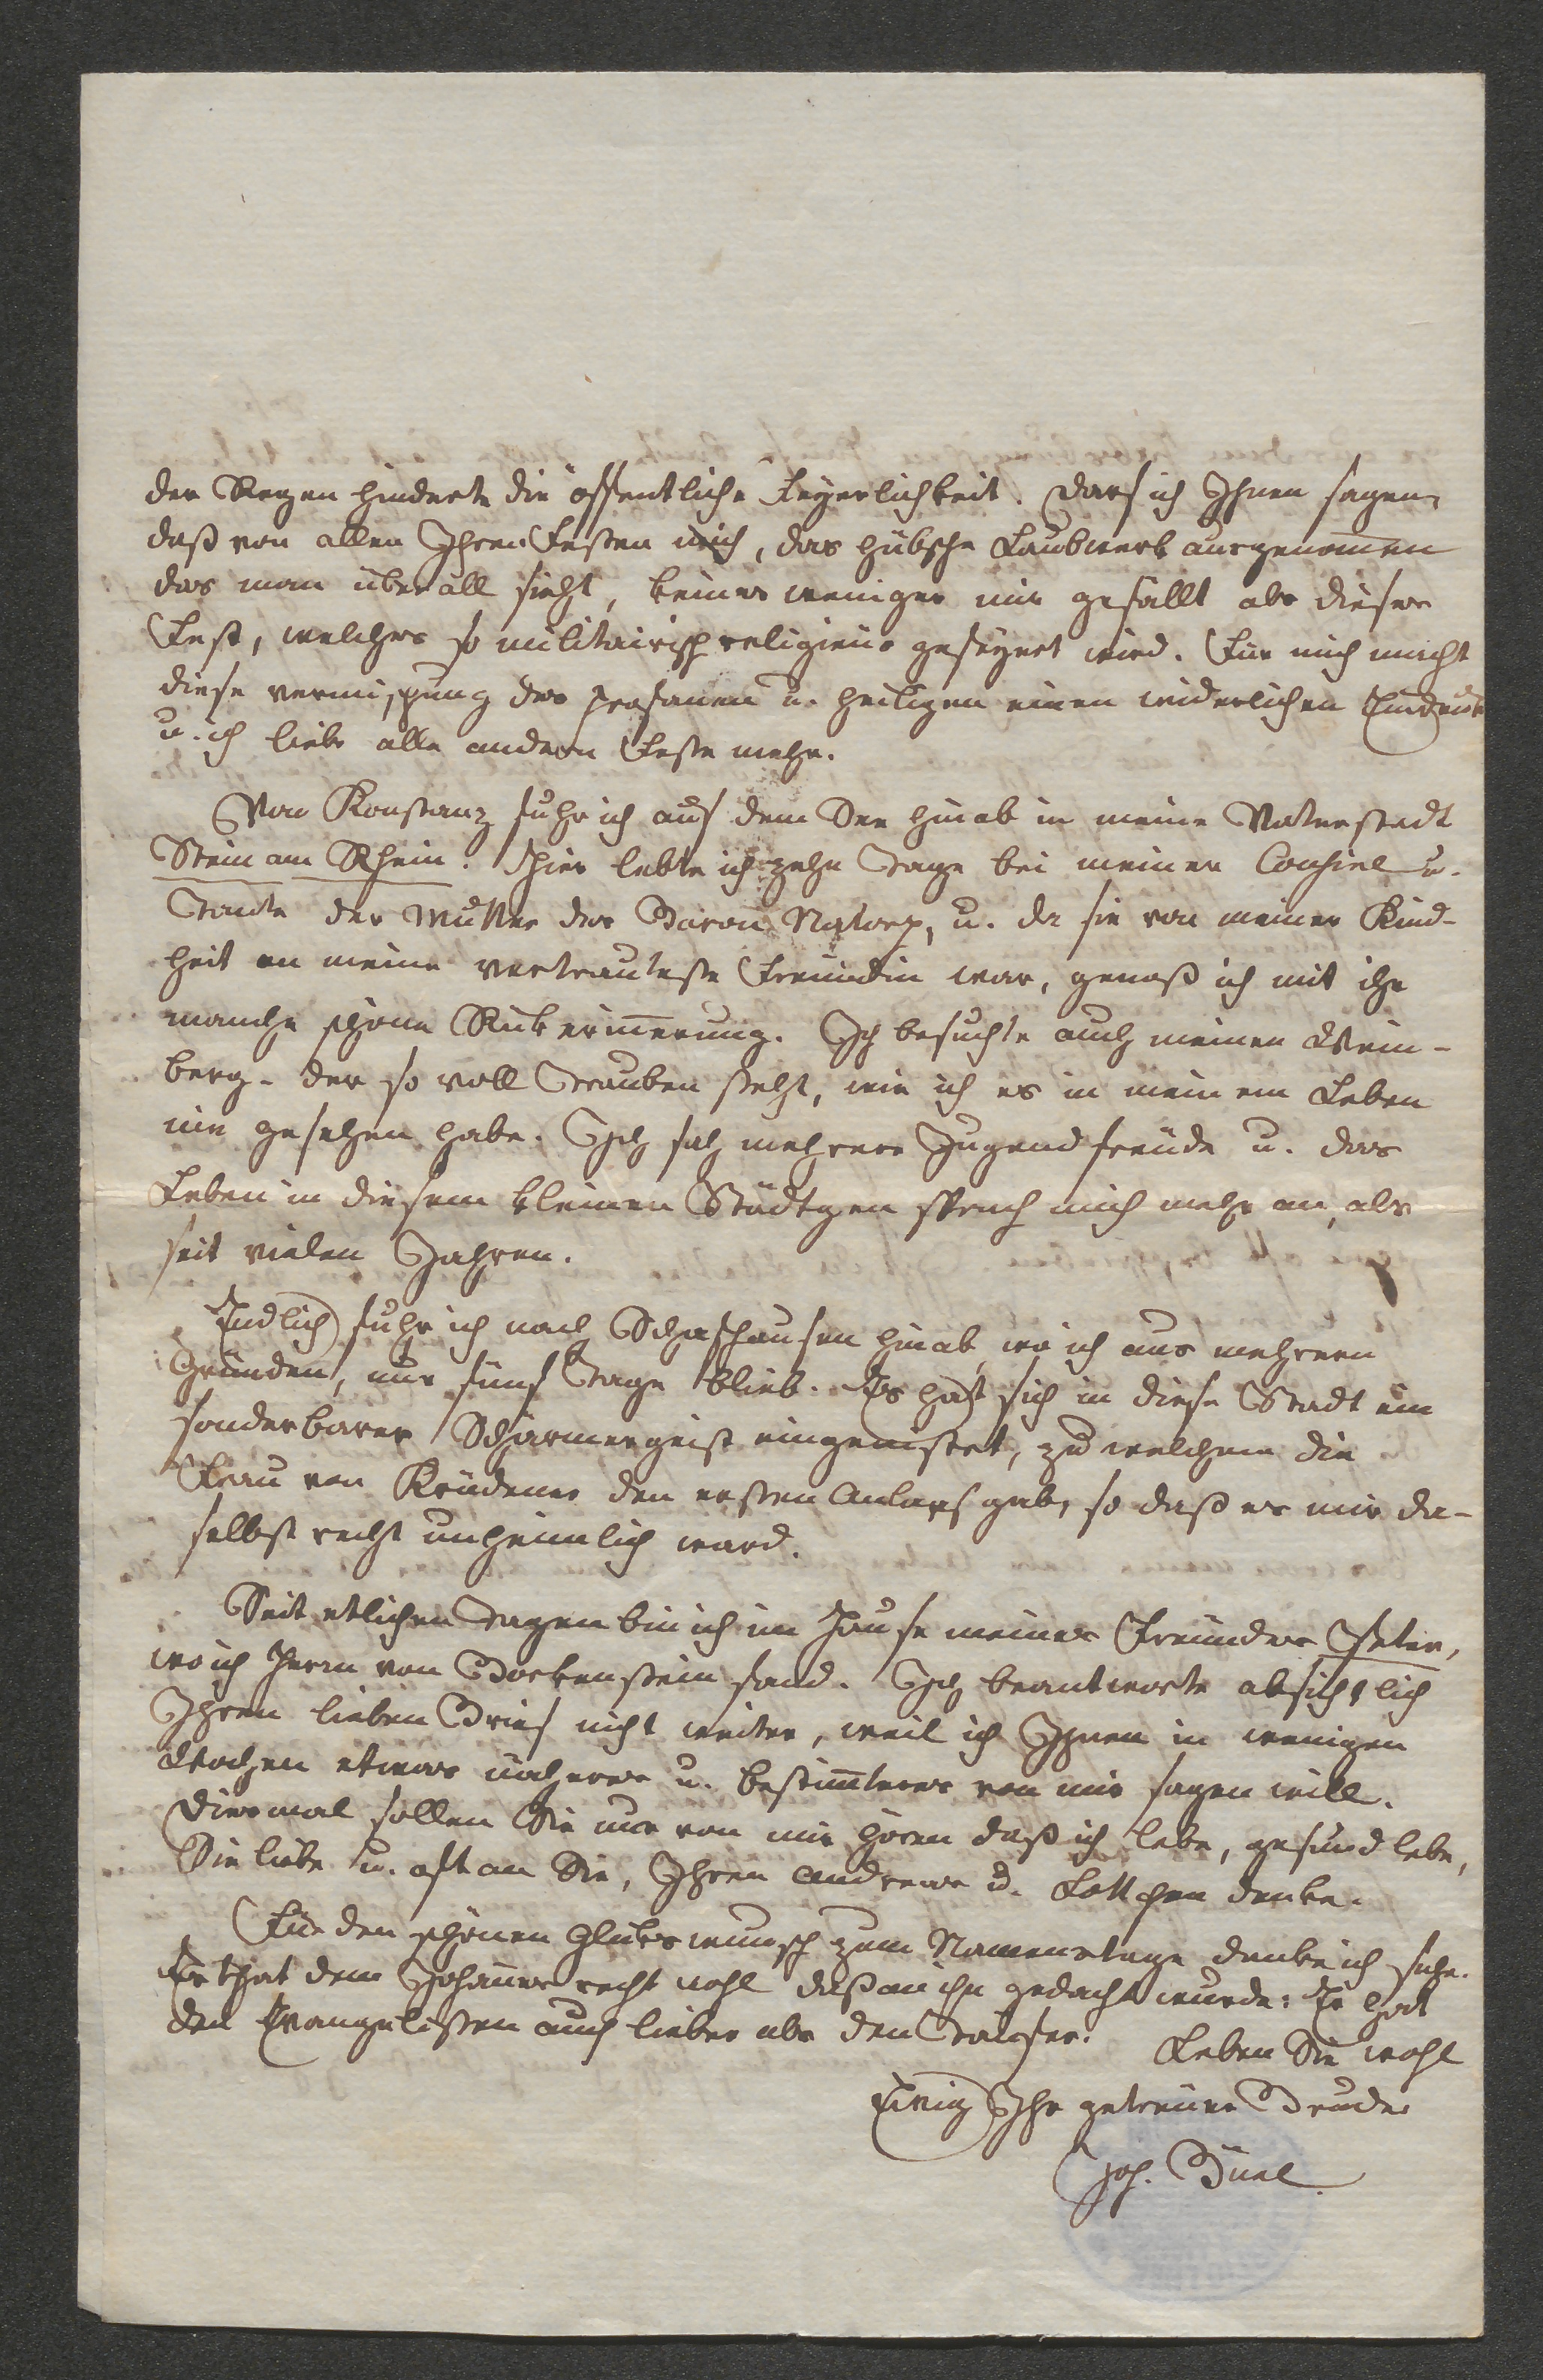 der Regen hinderte die öffentliche Feyerlichkeit. Darf ich Ihnen sagen,
daß von allen Ihren Festen mich, das hübsche Laubwerk ausgenom̄en
das man überall sieht, keines weniger mir gefällt als dieses
Fest, welches so militairisch religieus gefeyert wird. Für mich macht
diese vermischung des profanen u. heiligen einen widerlichen Eindruk
u. ich liebe alle andern Feste mehr.
Von Konstanz fuhr ich auf dem See hinab in meine Vaterstadt
Stein am Rhein. Hier lebte ich zehn Tage bei meiner Cousine u.
Tante der Mutter des Baron Natorp, u. da sie von meiner Kind-
heit an meine vertrauteste Freundin war, genoß ich mit ihr
manche schöne Rükerin̄erung. Ich besuchte auch meinen Wein-
berg - der so voll Trauben steht, wie ich es in meinem Leben
nie gesehen habe. Ich sah mehrere Jugendfreunde u. das
Leben in diesem kleinen Städtgen sprach mich mehr an, als
seit vielen Jahren.
Endlich fuhr ich nach Schafhausen hinab, wo ich aus mehrern
Gründen, nur fünf Tage blieb. Es hat sich in diese Stadt ein
sonderbarer Schwärmergeist eingenistet, zu welchem die
Frau von Krüdener den ersten Anlass gab, so daß es mir da-
selbst recht unheimlich ward.
Seit etlichen Tagen bin ich im Hause meines Freundes
wo ich Herrn von Borkenstein fand. Ich beantworte absichtlich
Ihren lieben Brief nicht weiter, weil ich Ihnen in wenigen
Wochen etwas näheres u. bestim̄teres von mir sagen will.
Diesmal sollen Sie nur von mir hören daß ich lebe, gesund lebe,
Sie liebe u. oft an Sie, Ihren Andreas u. Lottchen denke.
Für den schönen Glükswunsch zum Namenstage danke ich sehr.
Es that dem Johannes recht wohl daß an ihn gedacht wurde: Er hat
den Evangelisten auch lieber als den Täufer. Leben Sie wohl
Ewig Ihr getreuer Bruder
Joh. Büel